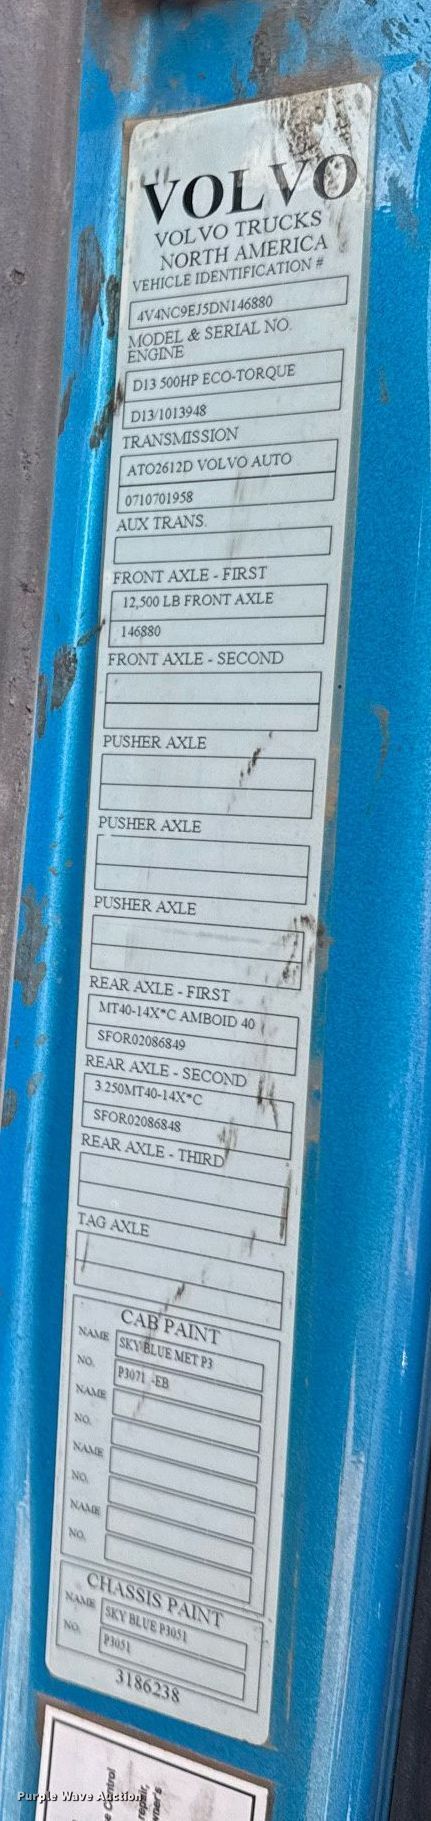 VOLVO
VOLVO TRUCKS
NORTH AMERICA
VEHICLE IDENTIFICATION #
4V4NC9EJ5DN146880
MODEL & SERIAL NO.
ENGINE
D13 500HP ECO-TORQUE
D13/1013948
TRANSMISSION
ATO2612D VOLVO AUTO
0710701958
AUX TRANS.
FRONT AXLE - FIRST
12,500 LB FRONT AXLE
146880
FRONT AXLE - SECOND
PUSHER AXLE
PUSHER AXLE
PUSHER AXLE
REAR AXLE - FIRST
MT40-14X*C AMBOID 40
SFOR02086849
REAR AXLE - SECOND
3.250MT40-14X*C
SFOR02086848
REAR AXLE - THIRD
TAG AXLE
CAB PAINT
NAME SKY BLUE MET P3
NO. P3071 -EB
NAME
NO.
NAME
NO.
NAME
NO.
CHASSIS PAINT
NAME SKY BLUE P3051
NO. P3051
3186238
Control
repair,
Purple Wave Auction